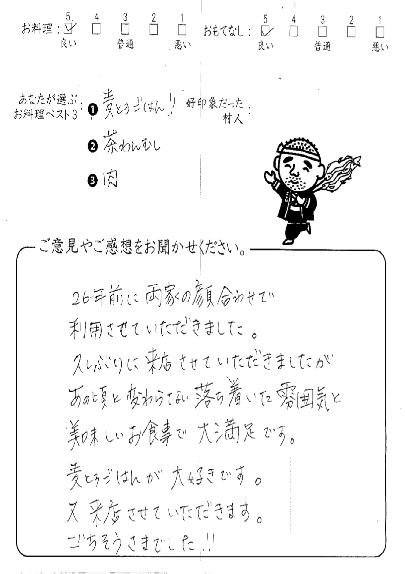 お料理: 5 4 3 2 1 おもてなし: 5 4 3 2 1
良い 普通 悪い 良い 普通 悪い
あなたが選ぶ
お料理ベスト3: ❶ 麦とろごはん!! 好印象だった
村人:
❷ 茶わんむし
❸ 肉
ご意見やご感想をお聞かせください。
26年前に両家の顔合わせで
利用させていただきました。
久しぶりに来店させていただきましたが
あの頃と変わらない落ち着いた雰囲気と
美味しいお食事で大満足です。
麦とろごはんが大好きです。
又来店させていただきます。
ごちそうさまでした!!